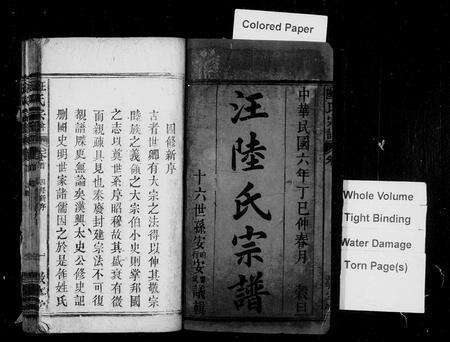 Colored Paper
Whole Volume
Tight Binding
Water Damage
Torn Page(s)
中華民國六年丁巳仲春月 穀旦
汪陸氏宗譜
十六世孫安
國修新序
古者世卿有大宗之法得以伸其敬宗
睦族之義顧之大宗伯小史則掌邦國
之志以奠世系序昭穆故其盛衰有徵
而親疎具見也秦廢封建宗法不可復
覩譜牒更無論矣漢興太史公修史記
別國史明世家諸儒因之於是各姓氏